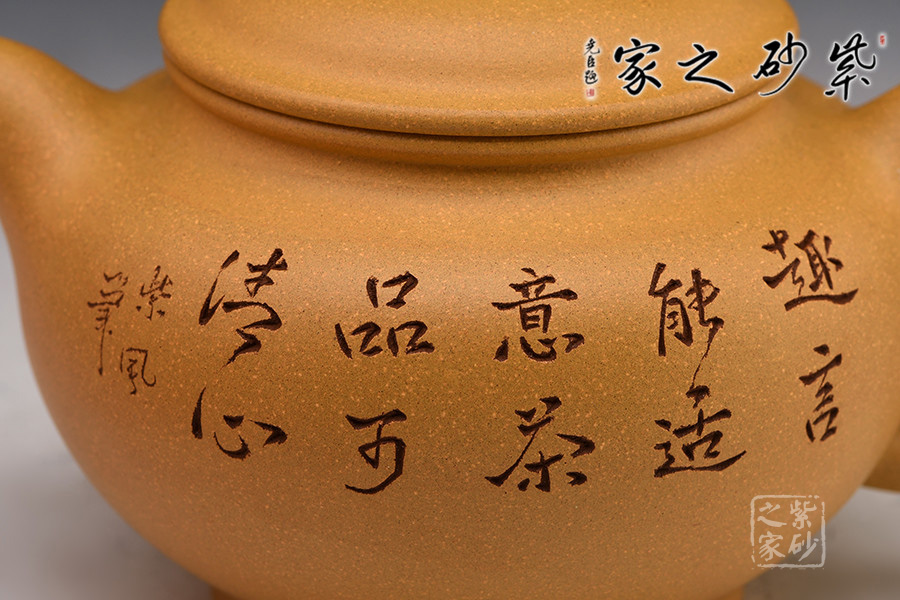 紫砂之家
趣言
能适
意茶
品可
清心
紫风
紫砂之家